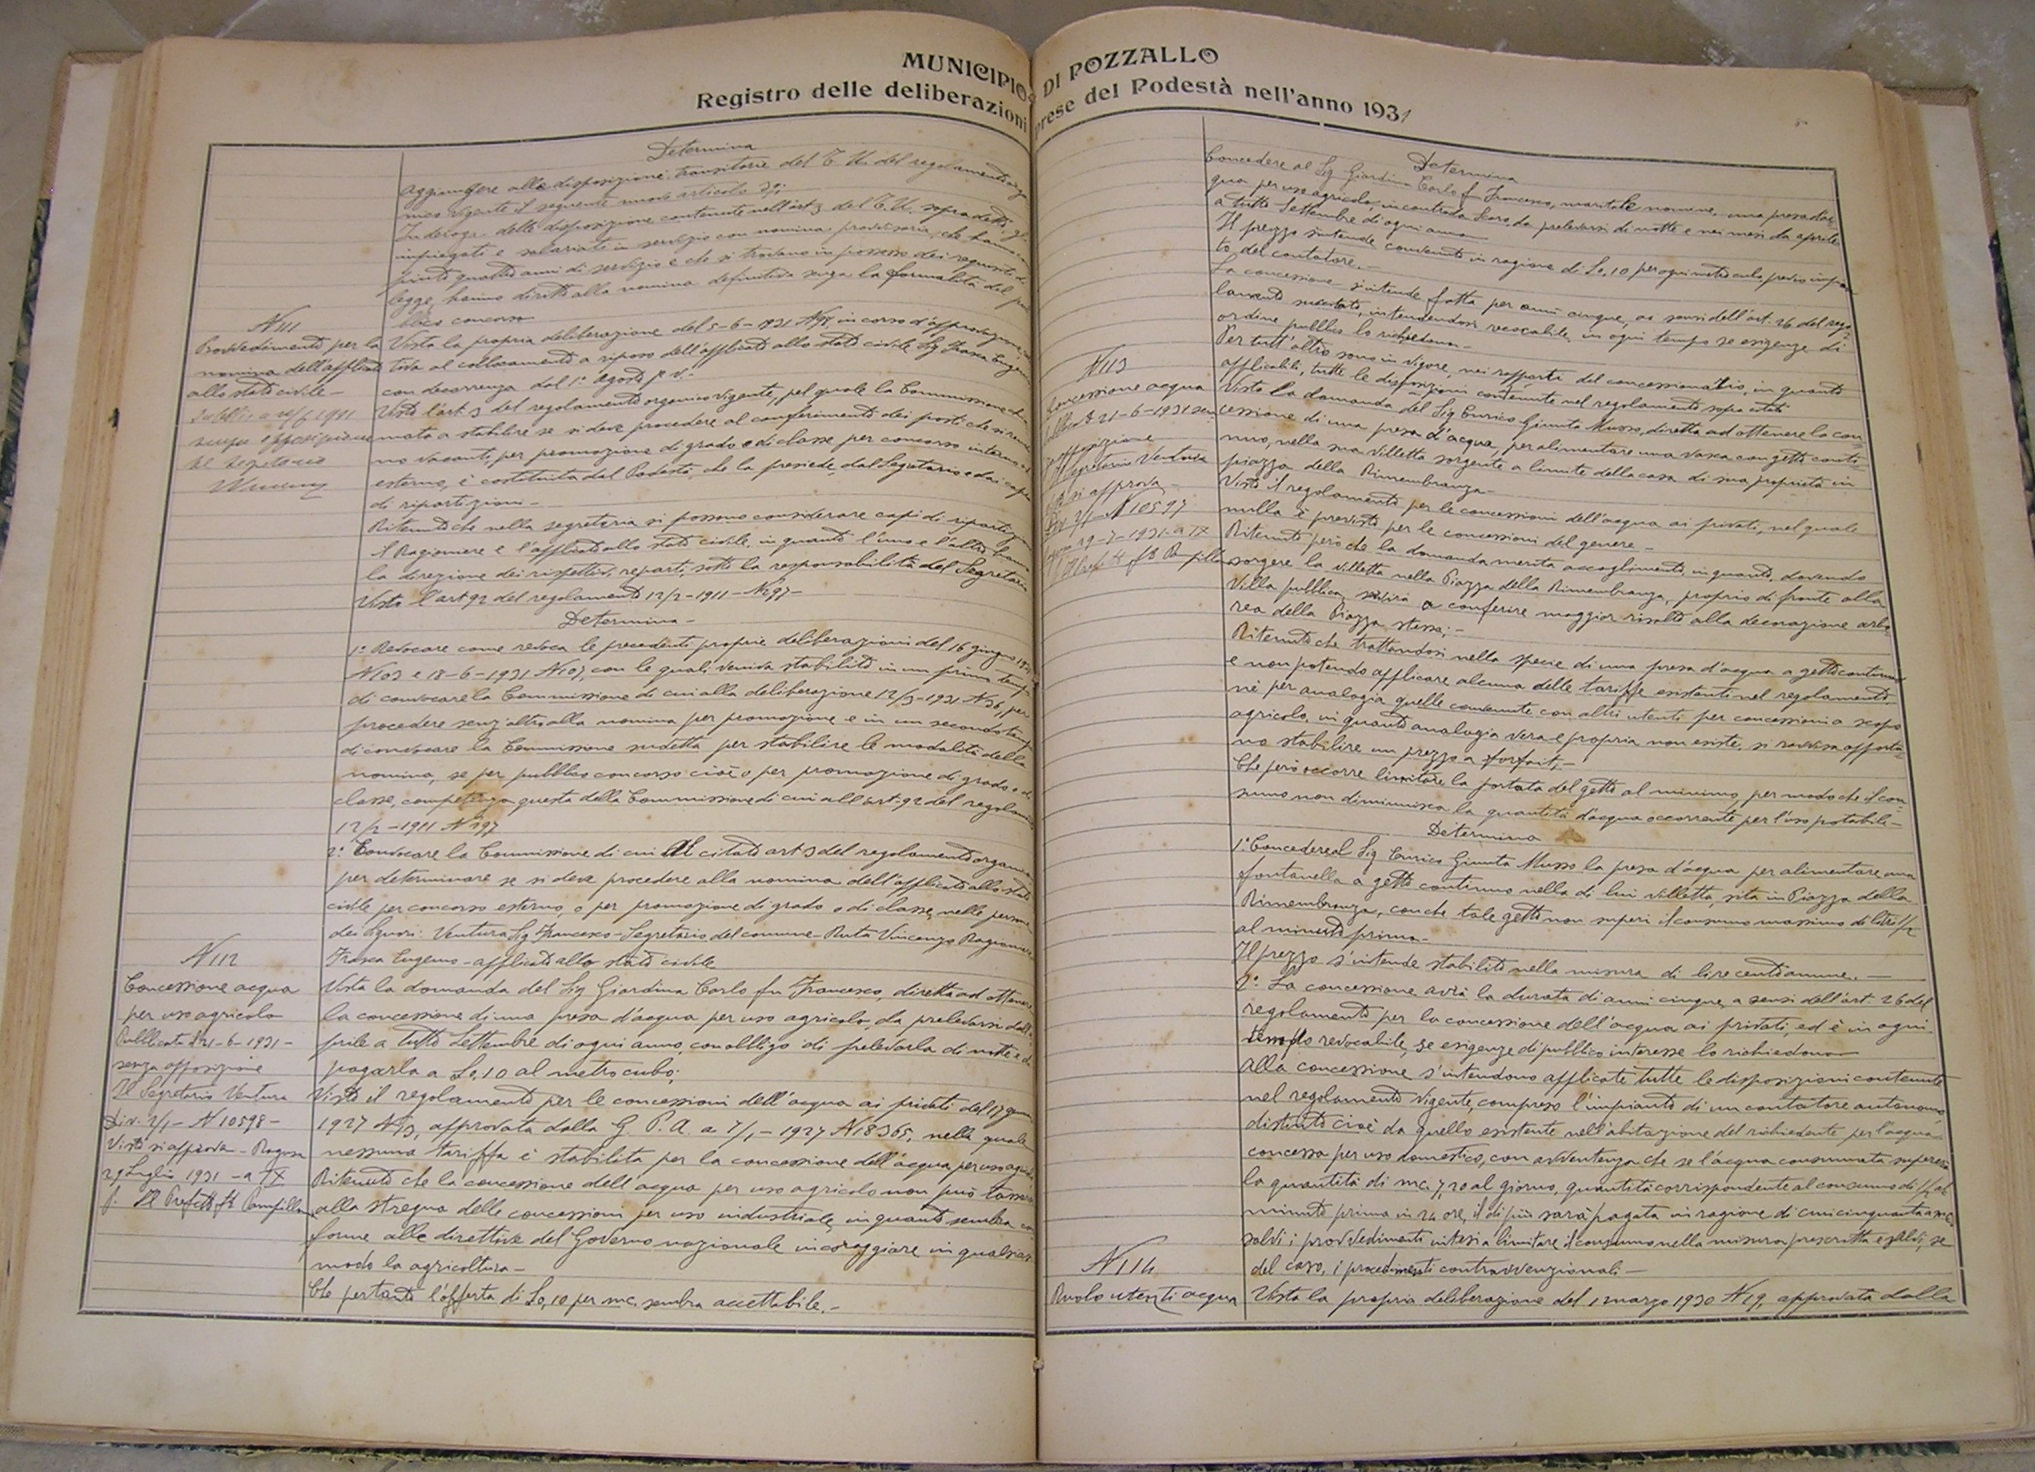 MUNICIPIO DI POZZALLO
Registro delle deliberazioni prese del Podestà nell'anno 1931
Determina
aggiungere alle disposizioni transitorie del T. U. del regolamento orga
nico vigente il seguente nuovo articolo
In deroga delle disposizione contenute nell'art 3 del T. U. sopradetto, gl'
impiegati e salariati in servizio con nomina provvisoria, che hanno
quattro anni di servizio e che si trovano in possesso dei requisiti di
legge, hanno diritto alla nomina definitiva senza la formalità del pub
blico concorso
N 111
Provvedimenti per la
nomina dell'applicato
allo stato civile -
senza opposizione
Il Segretario
Vista la propria deliberazione del 5-6-1931 in corso d'approvazione
tiva al collocamento a riposo dell'applicato allo stato civile Sig Frasca Eugenio
con decorrenza dal 1° agosto p.v.-
Visto l'art 3 del regolamento organico vigente, pel quale la Commissione chia
mata a stabilire se si deve procedere al conferimento dei posti che si rendo
no vacanti, per promozione di grado o di classe per concorso interno o
esterno, è costituita dal Podestà, che la presiede dal Segretario e dai capi
di ripartizioni -
Ritenuto che nella segreteria si possono considerare capi di ripartizione
il Ragioniere e l'applicato allo stato civile, in quanto l'uno e l'altro hanno
la direzione dei rispettivi reparti, sotto la responsabilità del Segretario
Visto l'art 92 del regolamento 12/2-1911-N297-
Determina -
1° Revocare come revoca le precedenti proprie deliberazioni del 16 giugno 1931
N103 e 18-6-1931 N107, con le quali veniva stabilito in un primo tempo
di convocare la Commissione di cui alla deliberazione 12/3-1931 N36, per
procedere senz'altro alla nomina per promozione e in un secondo tempo
di convocare la Commissione sudetta per stabilire le modalità della
nomina, se per pubblico concorso cioè o per promozione di grado o di
classe, competenza questa della Commissione di cui all'art. 92 del regolamento
12/2-1911 N297
2° Convocare la Commissione di cui al citato art 3 del regolamento organico
per determinare se si deve procedere alla nomina dell'applicato allo stato
civile per concorso esterno, o per promozione di grado o di classe, nelle persone
dei signori: Ventura Sig Francesco - Segretario del comune - Ruta Vincenzo Ragioniere
Frasca Eugenio - applicato allo stato civile
N 112
Concessione acqua
per uso agricolo
Pubblicata il 21-6-1931-
senza opposizione
Il Segretario Ventura
Div. 2/1 - N 10598-
Visto si approva - Ragusa
29 Luglio 1931 - a IX
p. Il Prefetto f.to Pampillo
Vista la domanda del Sig Giardina Carlo fu Francesco, diretta ad ottenere
la concessione di una presa d'acqua per uso agricolo da prelevarsi dall'a
prile a tutto Settembre di ogni anno, con obbligo di prelevarla di notte e di
pagarla a L 0,10 al metro cubo;
Visto il regolamento per le concessioni dell'acqua ai privati del 17 genn
1927 N3, approvata dalla G. P. A. a 7/1-1927 N18365, nella quale
nessuna tariffa è stabilita per la concessione dell'acqua per uso agricolo
Ritenuto che la concessione dell'acqua per uso agricolo non può tassarsi
alla stregua delle concessioni per uso industriale, in quanto sembra con
forme alle direttive del Governo nazionale incoraggiare in qualsiasi
modo la agricoltura -
Che pertanto l'offerta di L 0,10 per mc. sembra accettabile.-
Determina
Concedere al Sig Giardina Carlo fu Francesco, maritale nomine, una presa d'ac
qua per uso agricolo, in contrada Scaro, da prelevarsi di notte e nei mesi da aprile
a tutto Settembre di ogni anno
Il prezzo s'intende convenuto in ragione di L 0,10 per ogni metro cubo, previo impian
to del contatore.-
La concessione s'intende fatta per anni cinque, ai sensi dell'art. 26 del rego
lamento succitato, intendendosi revocabile, in ogni tempo se esigenze di
ordine pubblico lo richiedano -
Per tutt'altro sono in vigore, nei rapporti del concessionario, in quanto
applicabili, tutte le disposizioni contenute nel regolamento sopra citato
N 113
Concessione acqua
Pubblicata 21-6-1931 senza
opposizione
Il Segretario Ventura
Visto si approva
Div. 2/1 - N 10597
Ragusa 29-7-1931- a IX
p. Il Prefetto f.to Pampillo
Vista la domanda del Sig Enrico Giunta Musso, diretta ad ottenere la con
cessione di una presa d'acqua, per alimentare una vasca con getto conti
nuo, nella sua villetta sorgente a limite della casa di sua proprietà in
piazza della Rimembranza -
Visto il regolamento per le concessioni dell'acqua ai privati, nel quale
nulla è previsto per le concessioni del genere -
Ritenuto però che la domanda merita accoglimento, in quanto, dovendo
sorgere la villetta nella Piazza della Rimembranza, proprio di fronte alla
Villa pubblica, servirà a conferire maggior risalto alla decorazione arbo
rea della Piazza stessa;-
Ritenuto che trattandosi nella specie di una presa d'acqua a getto continuo
e non potendo applicare alcuna delle tariffe esistenti nel regolamento,
nè per analogia quelle convenute con altri utenti per concessioni a scopo
agricolo, in quanto analogia vera e propria non esiste, si ravvisa opportu-
no stabilire un prezzo a forfait;-
Che però occorre limitare la portata del getto al minimo, per modo che il con-
sumo non diminuisca la quantità d'acqua occorrente per l'uso potabile-
Determina
1° Concedere al Sig Enrico Giunta Musso la presa d'acqua per alimentare una
fontanella a getto continuo nella di lui villetta, sita in Piazza della
Rimembranza, con che tale getto non superi il consumo massimo di litri 1/2
al minuto primo -
Il prezzo s'intende stabilito nella misura di lire cento annue.-
2° La concessione avrà la durata di anni cinque, a sensi dell'art. 26 del
regolamento per la concessione dell'acqua ai privati, ed è in ogni
tempo revocabile, se esigenze di pubblico interesse lo richiedono
Alla concessione s'intendono applicate tutte le disposizioni contenute
nel regolamento vigente, compreso l'impianto di un contatore autonomo,
distinto cioè da quello esistente nell'abitazione del richiedente per l'acqua
concessa per uso domestico, con avvertenza che se l'acqua consumata superera
la quantità di mc. 7,20 al giorno, quantità corrispondente al consumo di 1/2 al
minuto primo in 24 ore, il di più sarà pagata in ragione di cinquanta a mc
salvi i provvedimenti intesi a limitare il consumo nella misura prescritta e salvi, se
del caso, i procedimenti contravvenzionali -
N 114
Ruolo utenti acqua
Vista la propria deliberazione del 1 marzo 1930 N 19, approvata dalla